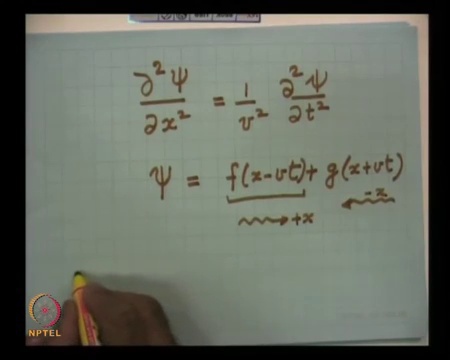 ∂²Ψ/∂x² = 1/v² ∂²Ψ/∂t²
Ψ = f(x-vt) + g(x+vt)
→ +x ← -x
NPTEL